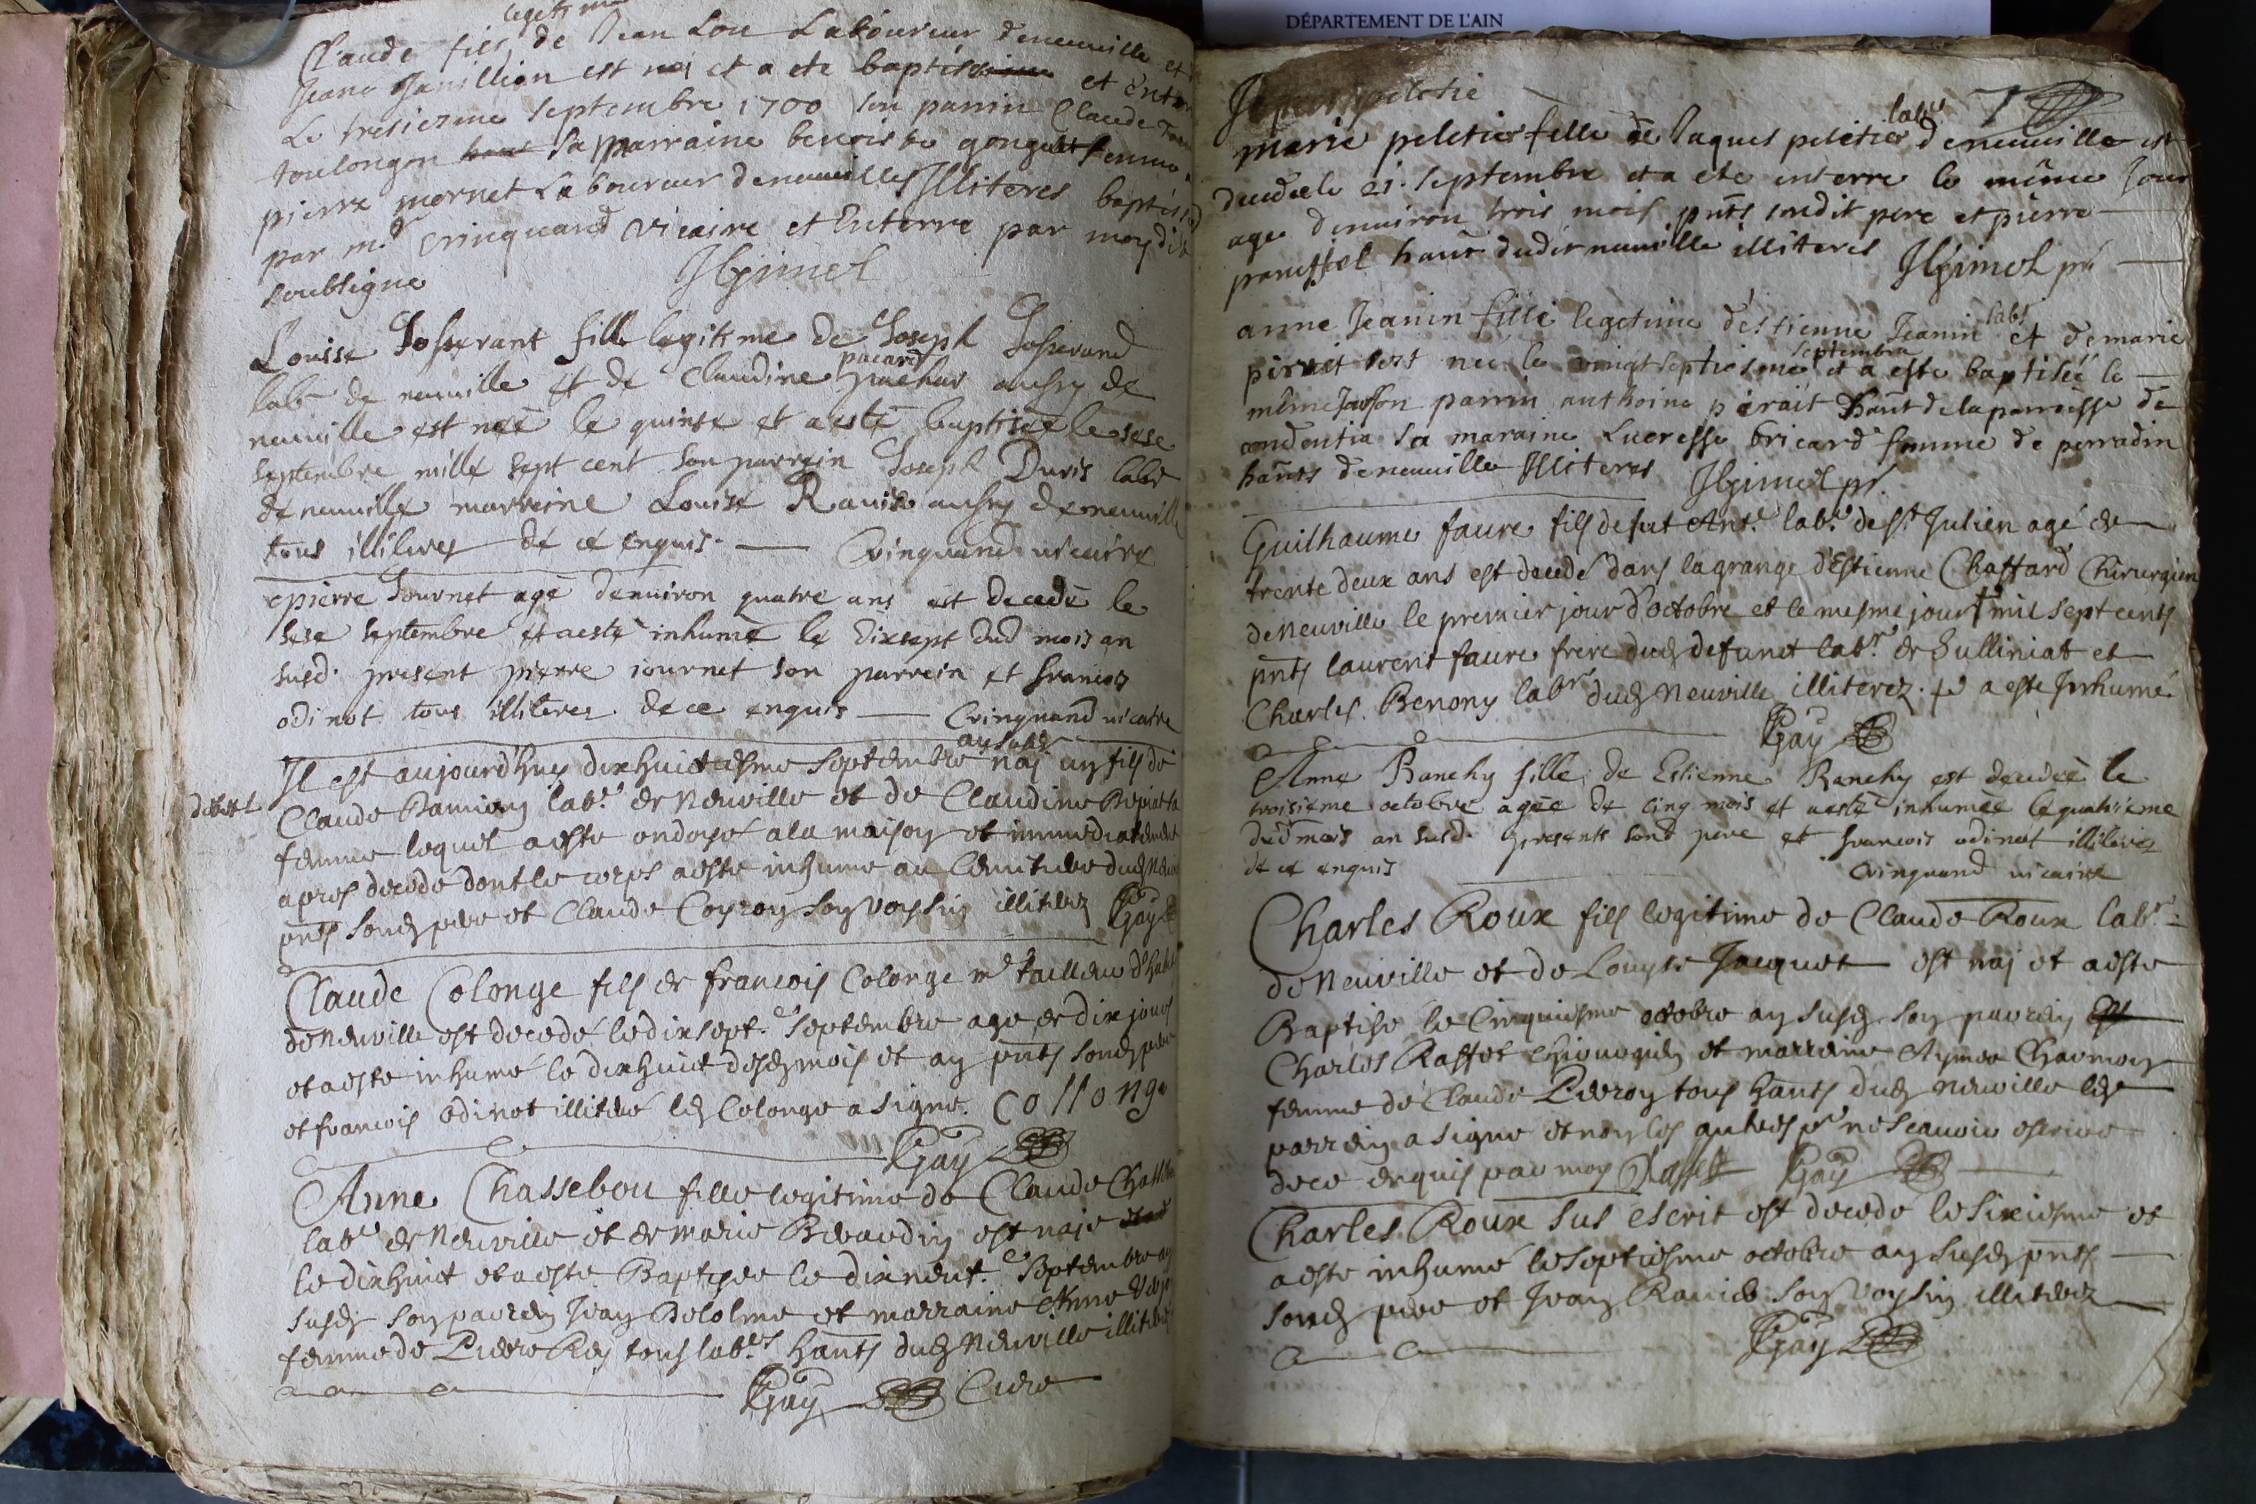 legetime
Claude fils de Jean Lou Laboureur deneuville et
Jeane Janillion est né et a ete baptisé et Enter
Le tresiezme septembre 1700 son parrin Claude
toulongon sa marraine benoiste gonguet femme
pierre mornet Laboureur deneuville Illiteres baptisé
par mr Cringuand vicaire et Enterre par moy dit
soubsigne JLgimel
Louise Josserant fille legitime de Joseph Josserand
pacard
labr de neuville et de Claudine puchar aussy de
neuville est neé le quinse et a esté baptisée le sese
septembre mille sept cent son parrein Joseph Duris labr
de neuville marreine Louise Ravise aussy de neuville
tous illiteres de ce enquis. Cringuand vicaire
pierre Journet agé denviron quatre ans est decedé le
sese septembre et a esté inhumé le dixsept dud mois an
susd. present pierre journet son parrein et francois
odinot tous illiterez de ce enquis Cringuand vicaire
an susdt
Il est aujourd'huy dixhuictiesme septembre naj un fils de
Claude Damiony labr. de Neuville et de Claudine
femme lequel a esté ondoyé a la maison et immediatement
apres decedé dont le corps a esté inhumé au Cemitiere dud Neu
pnts sond pere et Claude Coyron son voysin illiterez Gay
Claude Colonge fils de francois Colonge me tailleur d'habi
de Neuville est decedé le dixsept.e septembre agé de dix jours
et a esté inhumé le dixhuict desd mois et an pnts sond pere
et francois Odinot illiteré led Colonge a signe. Collonge
Gay
Anne Chassebou fille legitime de Claude Chasse
labr de Neuville et de marie Revaudin est naje
le dixhuict et a esté Baptisée le dixneuf.e septembre an
susd son parrein Jean Delolme et marraine Anne
femme de Pierre Rey tous labrs hants dud Neuville illiterez
Gay Curé
DÉPARTEMENT DE L'AIN
7
peletie
labr
marie peletier fille de Jaques peletier deneuville est
decedee le 21. septembre et a ete enterre le même Jour
agee denviron trois mois pnts sondit pere et pierre
panissiel hant dudit neuville illiteres JLgimel pr
labr
anne Jeanin fille legetime d'estienne Jeanin et de marie
septembre
piruit sest neé le vingtseptiesme et a esté baptisée le
même Jour son parrin anthoine pirait hant de la parroisse de
condentia sa maraine Lucresse bricard femme de perradin
hants deneuville Illiteres JLgimel pr
Guilhaume faure fils de fut Ant.e labr. de St Julien agé de
trente deux ans est decedé dans la grange d'Estienne Chaffard Chirurgien
de Neuville le premier jour d'octobre et le mesme jour + mil sept cents
pnts laurent faure frere dud defunct labr. de Sulliniat et
Charles Benony labr dud Neuville illiterez. + a esté Inhumé
Gay
Anne Ranchy fille de Estienne Ranchy est decedeé le
troisieme octobre agée de cinq mois et a esté inhumée le quatrieme
dud mois an susd. presents sond pere et francois odinot illiterez
de ce enquis Cringuand vicaire
Charles Roux fils legitime de Claude Roux labr.
de Neuville et de Louyse Jacquet est naj et a esté
Baptisé le Cinquiesme octobre an susd son parrein
Charles Raffet chirurgien et marreine Aymée Charmoy
femme de Claude Perroy tous hants dud Neuville led
parrein a signe et non les autres pr ne scavoir escrire
de ce enquis par moy Raffet Gay
Charles Roux sus escrit est decedé le sixiesme et
a esté inhumé le septiesme octobre an susd pnts
sond pere et Jean Ravier son voysin illiterez
Gay